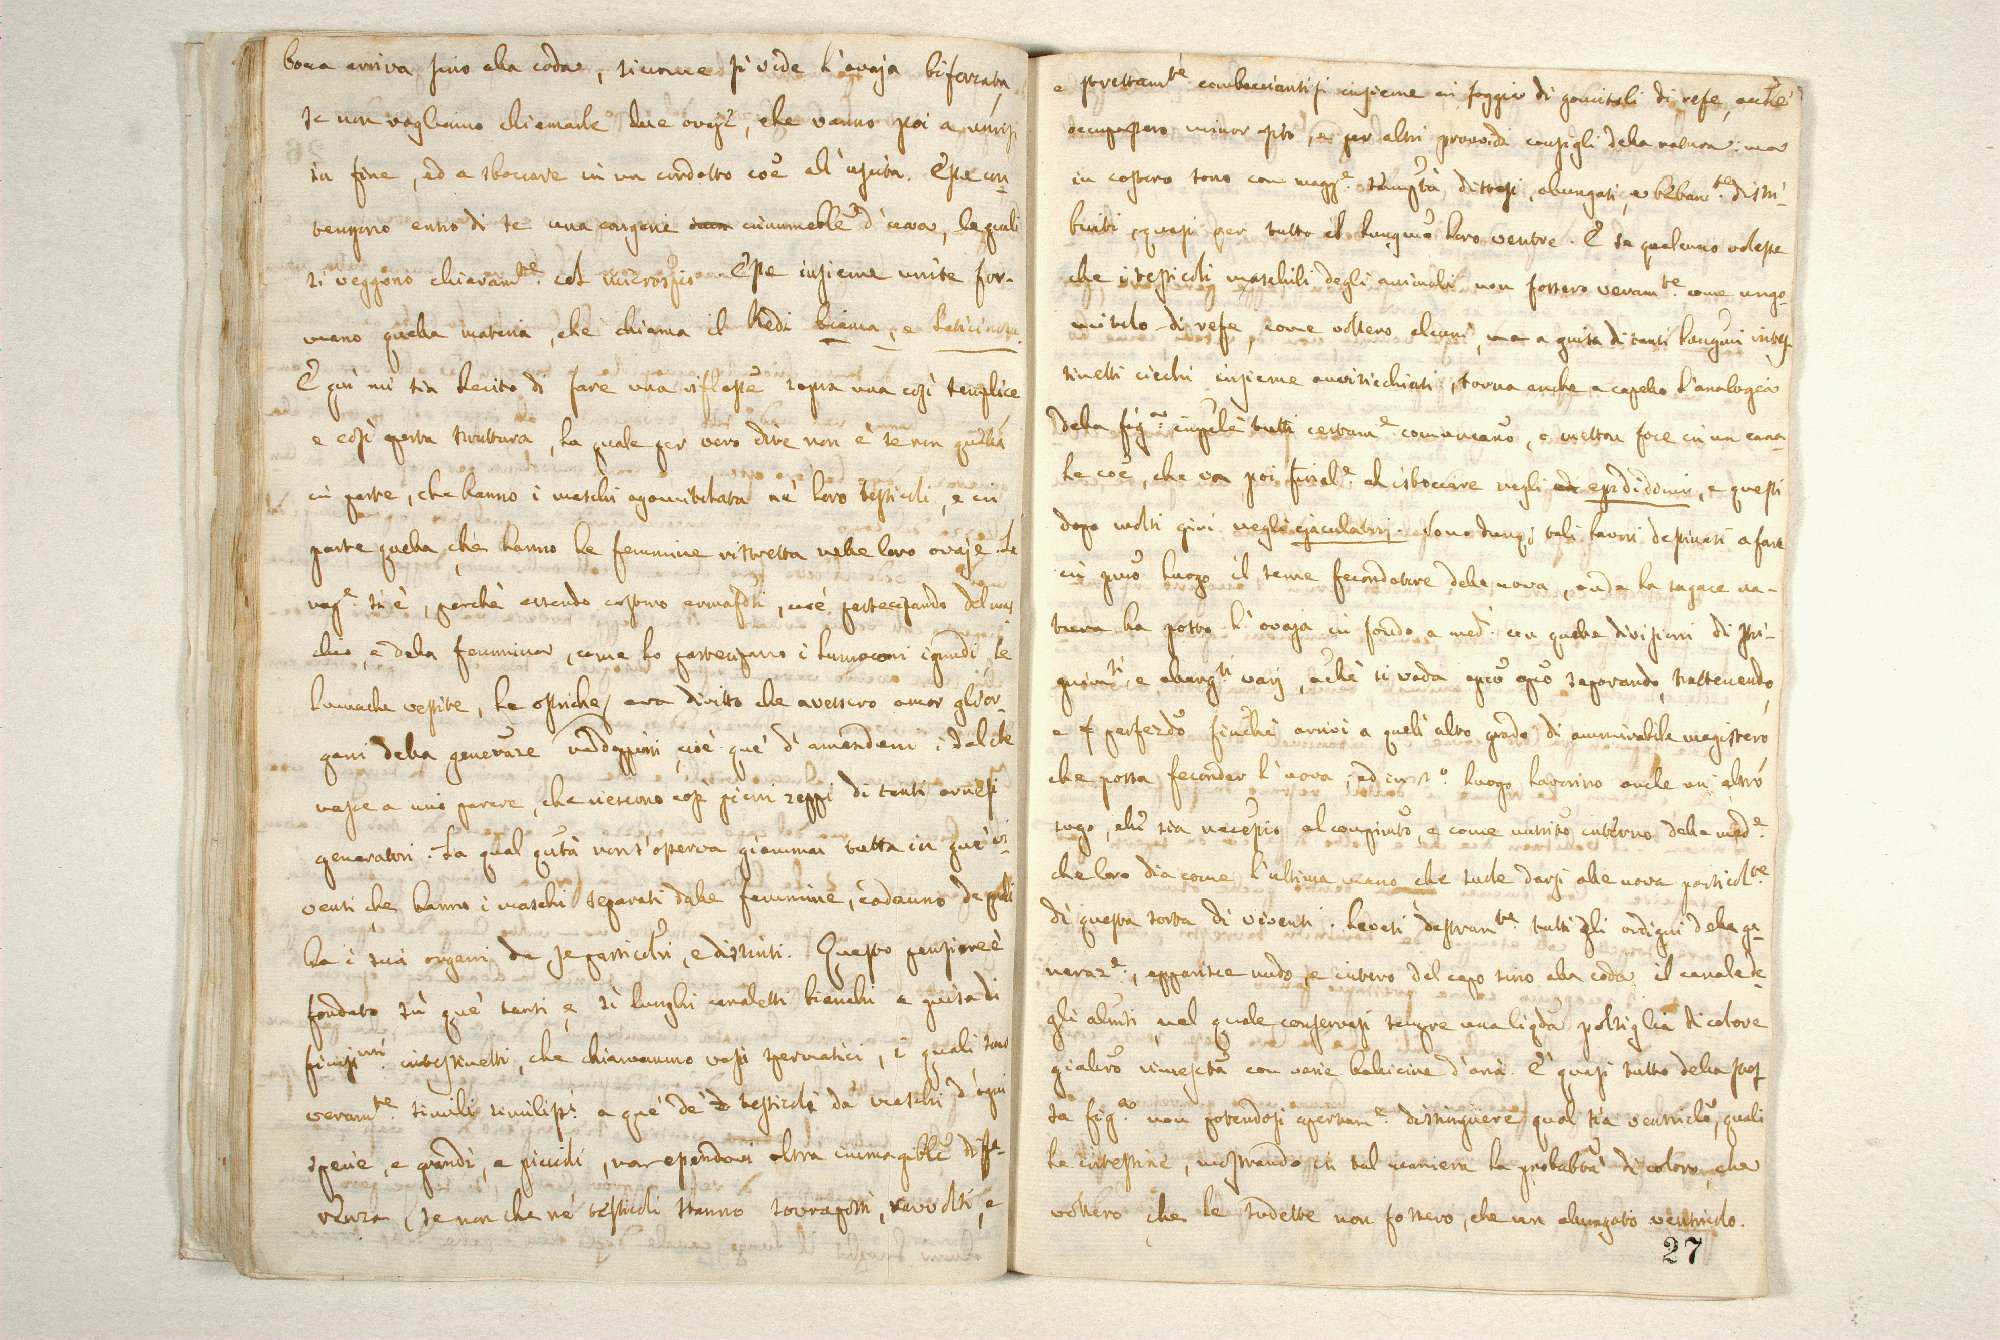 bocca arriva sino alla coda, siccome si vede l'ovaja biforcata,
se non vogliamo chiamarle due ovaje, che vanno poi a unirsi
in fine, ed a sboccare in un condotto coe all'uscita. Esse con-
tengono entro di se una congerie innumeble d'uova, le quali
si veggono chiaramte. col microspio. Esse insieme unite for-
mano quella materia, che chiama il Redi bianca, e latticinosa.
E qui mi sia lecito di fare una riflesse sopra una così semplice
e così posta struttura, la quale per vero dire non è se non quella
in parte, che hanno i maschi agomitolata ne' loro testicoli, e in
parte quella, che hanno le femmine ristretta nelle loro ovaje. La
rage. si è, perchè essendo costoro ermafditi, cioè partecipando del mas-
chio, e della femmina, come lo partecipano i lumaconi ignudi, le
lumache vestite, le ostriche, era diritto che avessero ancor gli or-
gani della generaze raddoppiati, cioè que' d'amendeni; dal che
nasce a mio parere, che riescono così pieni zeppi di tanti arnesi
generatori. La qual qutà non s'osserva giammai tutta in que' vi-
venti che hanno i maschi separati dalle femmine, cadauno de quali
ha i suoi organi da se particolri, e distinti. Questo pensiere è
fondato sù que' tanti e sì lunghi canaletti bianchi a guisa di
finissmi. intestinetti, che chiamammo vasi spermatici, i quali sono
veramte. simili similissi. a que' de' testicoli da' maschi d'ogni
spezie, e grandi, e piccioli, non essendovi altra immagible diffe-
renza, se non che ne' testicoli stanno sovraposti, ravvolti, e
e strettamte. combaciantisi insieme in foggia di gomitoli di refe, acchè
occupassero minor spio, e per altri provvidi consigli della natura: ma
in costoro sono con magge. semptà distesi, alungati, e bellamte. distri-
buiti quasi per tutto il lunguo loro ventre. E se qualcuno volesse
che i testicoli maschili degli animali non fossero veramte. come un go-
mitolo di refe, come vollero alcuni, ma a guisa di tanti lunguni inte-
stinetti ciechi insieme avviticchiati, torna anche a capello l'analogia
della figra. impchè tutti certame. comunicano, e metton foce in un cana-
le coe, che va poi finale. al isboccare negli epididdimi, e questi
dopo molti giri negli ejaculatorj. Sono dunq tali lavori destinati a fare
in pmo luogo il seme fecondatore delle uova, onde la sagace na-
tura ha posto l'ovaja in fondo a med. con quelle divisioni di stri-
gnimti, e alargti varj, acchè si vada apco apco separando, trattenendo,
e perfezdo finchè arrivi a quell'alto grado di ammirabile magistero
che possa fecondar l'uova; ed in 2o. luogo lavorino anche un altro
sugo, che sia necessio al compimto, e come nutrito interno delle mede.
che loro dia come l'ultima mano che suole darsi alle uova particolte.
di questa sorta di viventi. Levati destramte. tutti gli ordigni della ge-
neraze., apparisce nudo, e intero dal capo sino alla coda il canale de-
gli alimti, nel quale conservasi sempre una ligda poltiglia di colore
giallro rimescta con varie bollicine d'aria. E' quasi tutto della stes-
sa figra. non potendosi apertame. distinguere qual sia ventriclo, quali
le intestine, mostrando in tal maniera la probabtà di coloro, che
vollero che le sudette non fossero, che un alungato ventricolo.
27